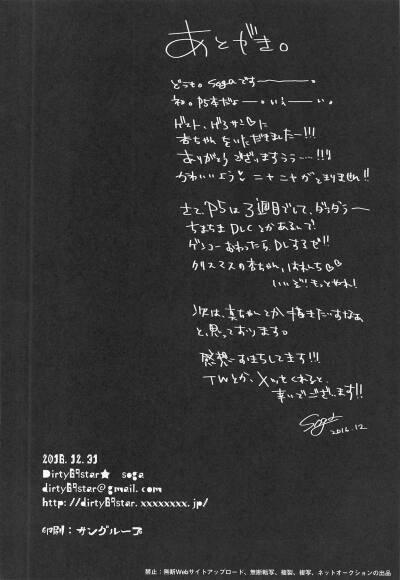 あとがき。
どうも。Sogaです――。
初。P5本だよ―。いぇ―い。
ゲスト、げろサンに
杏ちゃんをいただきましたー!!!
ありがとうございますぅぅ…!!!
かわいいよう♥ニヤニヤがとまりません!!
さて、P5は3週目でして、ダラダラ―
ちまちまDLCとかあるんで
ゲンコーおわったらDLするぜ!!
クリスマスの杏ちゃん、はれんち♡♡
いいぞ!もっとやれ!
次は、真ちゃんとか描きたいすなぁ
と、思っております。
感想おまちしてます!!!
TWとか、メッセくれると、
幸いでございます!!
Soga
2016.12
2016.12.31
Dirty69star★ soga
dirty69star@gmail.com
http://dirty69star.xxxxxxxx.jp/
印刷:サングループ
禁止:無断Webサイトアップロード、無断転写、複製、複写、ネットオークションの出品